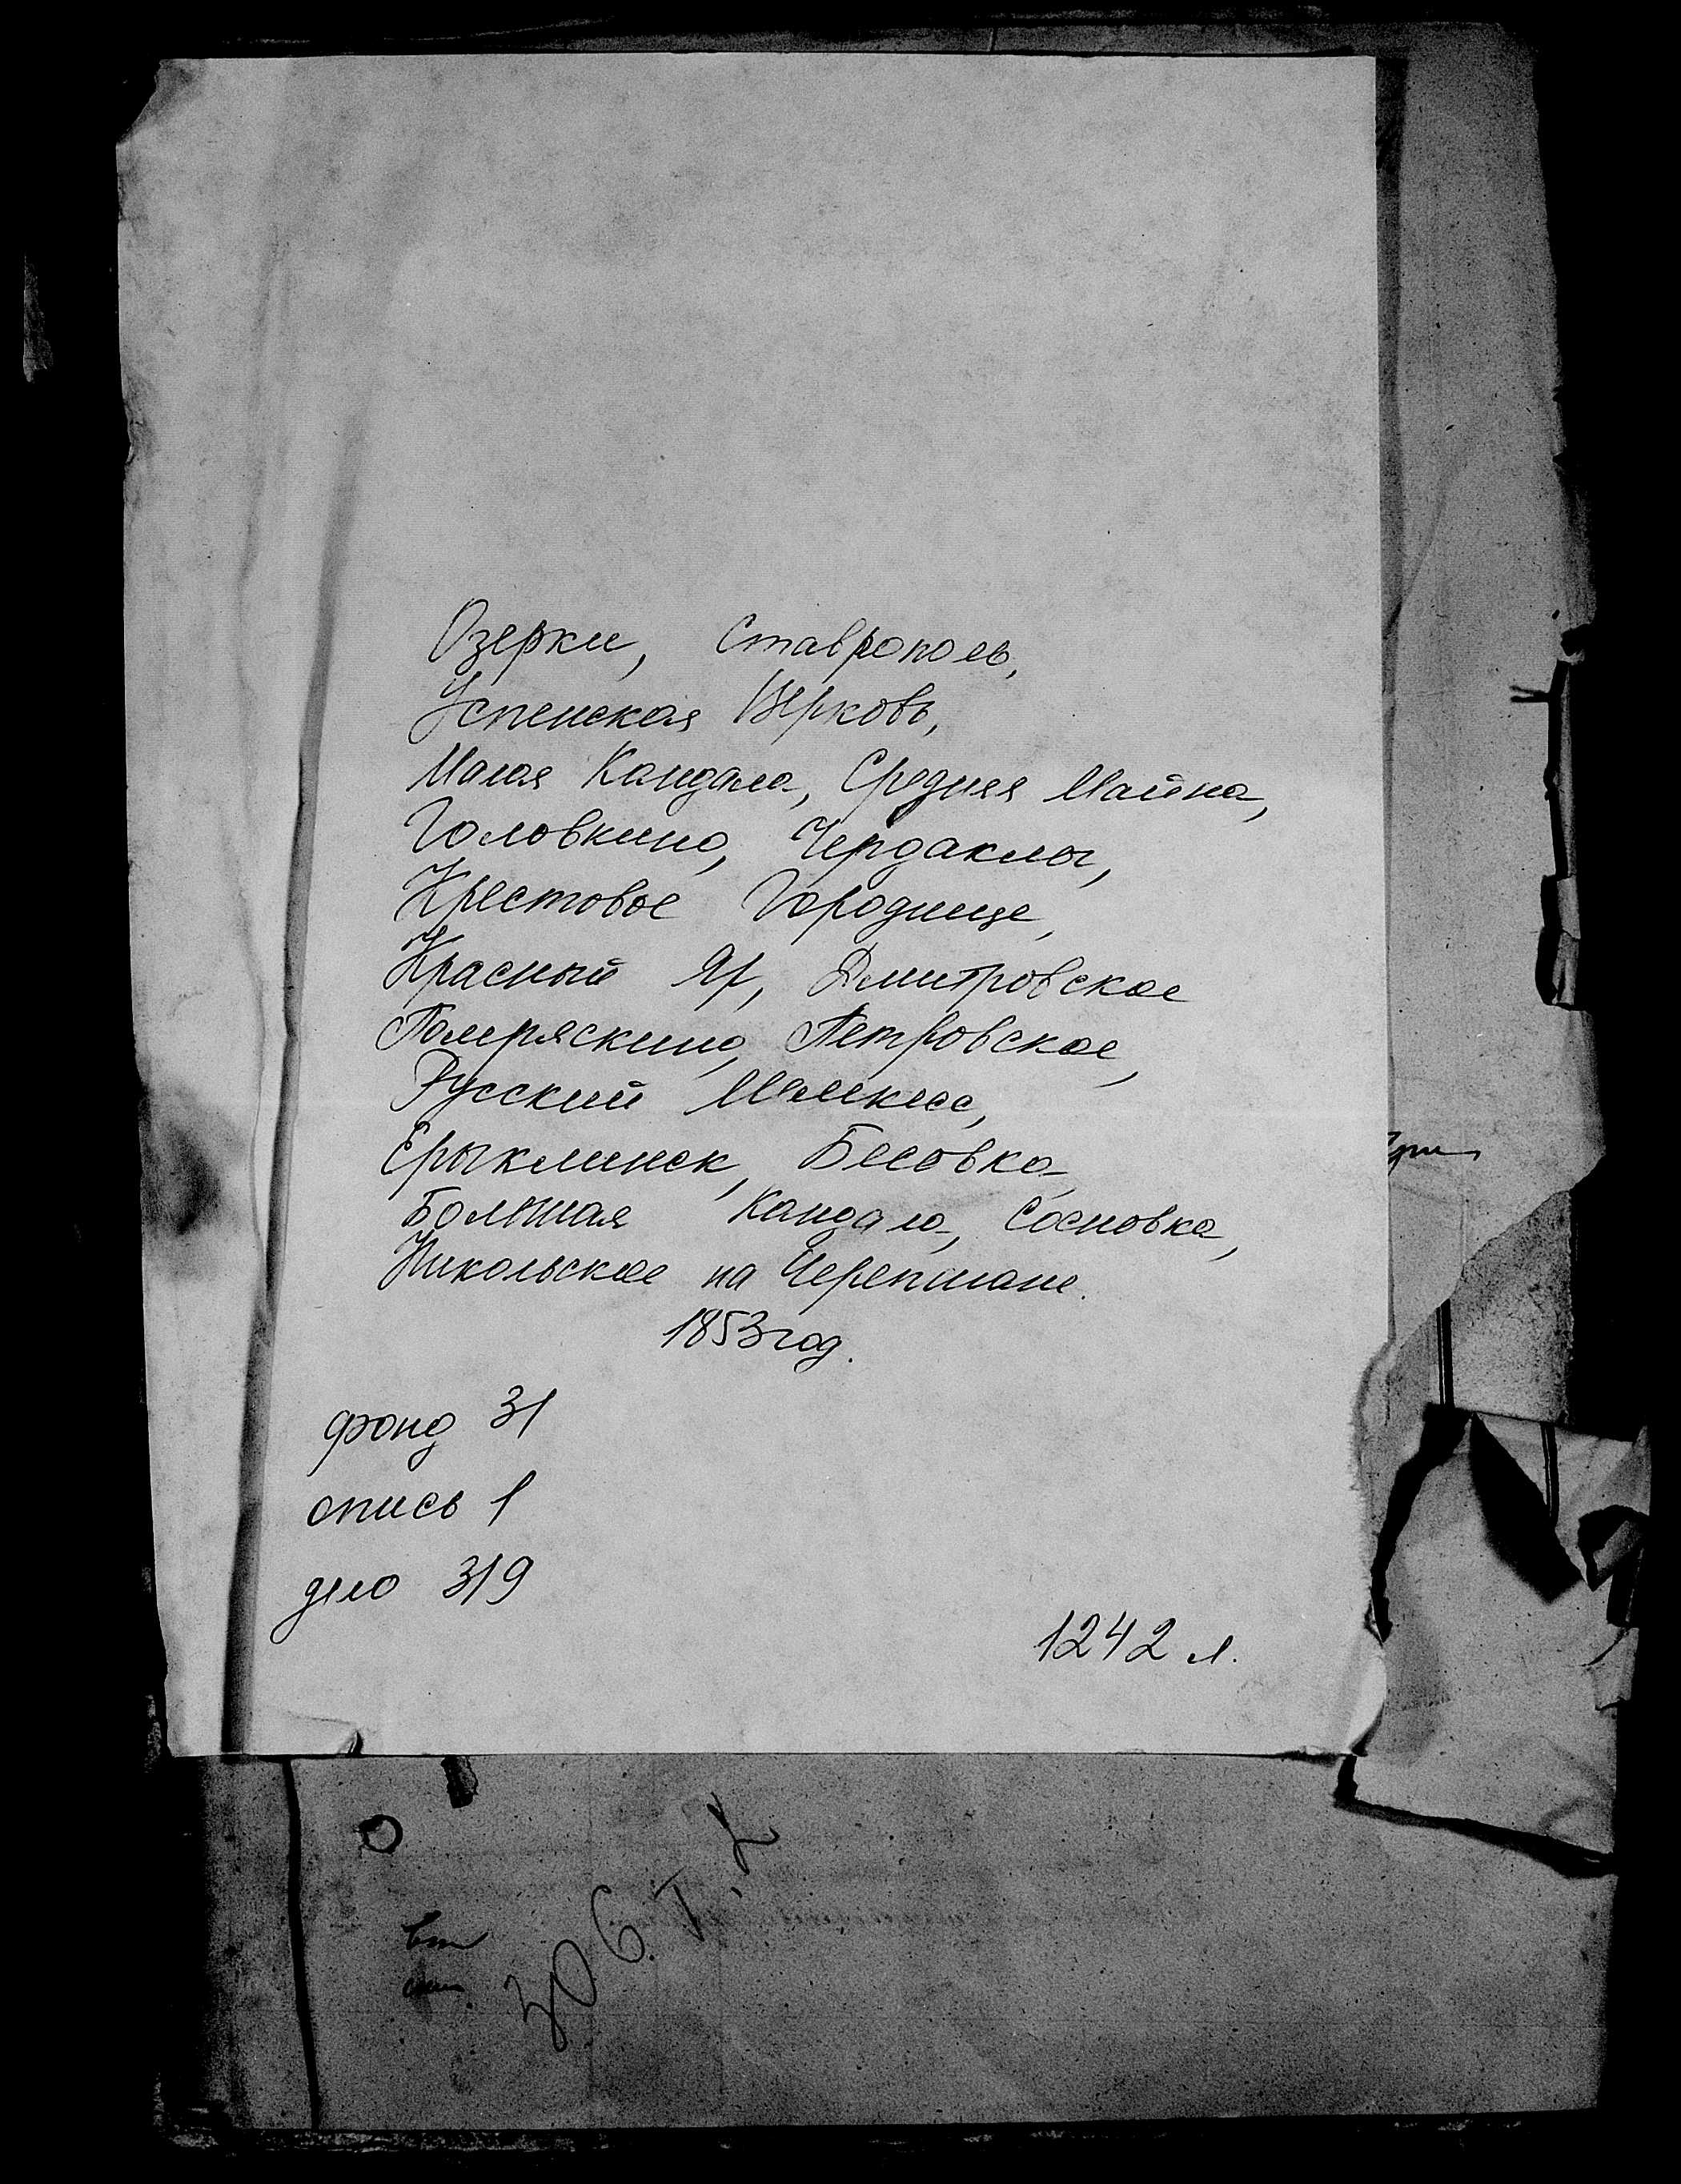 Озерки, Ставрополь,
Успенская Церковь,
Малая Кандала, Средняя Майна,
Головкино, Чердаклы,
Крестовое Городище,
Красный Яр, Дмитровское
Помряскино, Петровское,
Русский Мелекесс,
Ерыклинск, Бесовка,
Большая Кандала, Сосновка,
Никольское на Черемшане.
1853 год.
фонд 31
опись 1
дело 319
1242 л.